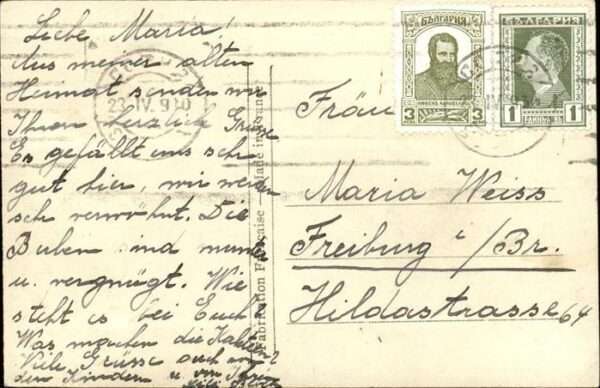 Liebe Maria!
Aus meiner alten
Heimat senden wir
Ihnen herzlich Grüße
Es gefällt uns seh
gut hier, wir werden
seh verwöhnt. Die
Buben sind munter
u. vergnügt. Wie
steht es bei Euch
Was machen die
Viele Grüsse auch von
den Kindern u. von Ihrer
Fabrication Française — Made in
БЪЛГАРИЯ
3 3
БЪЛГАРИЯ
1 1
23.IV.930
Frau
Maria Weiss
Freiburg i/Br.
Hildastrasse 64